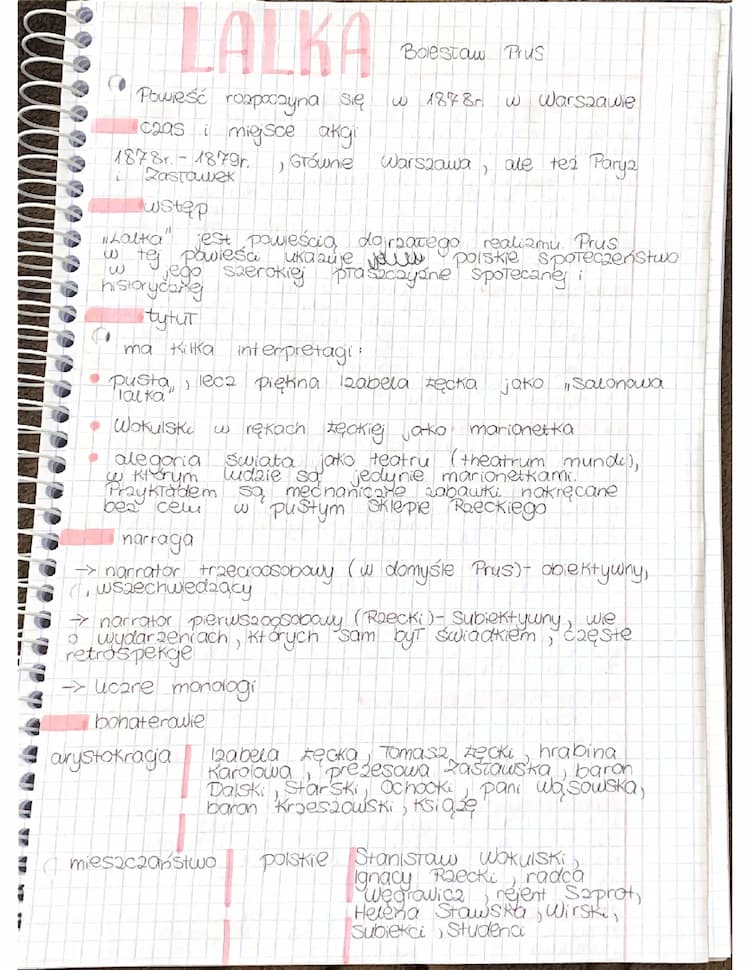 LALKA Bolesław Prus
Powieść rozpoczyna się w 1878r. w Warszawie
czas i miejsce akcji
1878r. - 1879r. , Główne Warszawa , ale też Paryż
i Zasławek
wstęp
„Lalka" jest powieścią dojrzałego realizmu. Prus
w tej powieści ukazuje polskie społeczeństwo
w jego szerokiej płaszczyźnie społecznej i
historycznej
tytuł
ma kilka interpretacji:
• pusta , lecz piękna Izabela Łęcka jako „salonowa
lalka"
• Wokulski w rękach Łęckiej jako marionetka
• alegoria świata jako teatru (theatrum mundi),
w którym ludzie są jedynie marionetkami.
Przykładem są mechaniczne zabawki nakręcane
bez celu w pustym sklepie Rzeckiego
narracja
→ narrator trzecioosobowy (w domyśle Prus) - obiektywny,
wszechwiedzący
→ narrator pierwszoosobowy (Rzecki) - subiektywny, wie
o wydarzeniach, których sam był świadkiem, częste
retrospekcje
→ liczne monologi
bohaterowie
arystokracja Izabela Łęcka, Tomasz Łęcki, hrabina
Karolowa, prezesowa Zasławska, baron
Dalski, Starski, Ochocki, pani Wąsowska,
baron Krzeszowski, Książę
mieszczaństwo polskie Stanisław Wokulski,
Ignacy Rzecki, radca
Węgrowicz, rejent Szprot,
Helena Stawska, Wirski,
subiekci, studenci